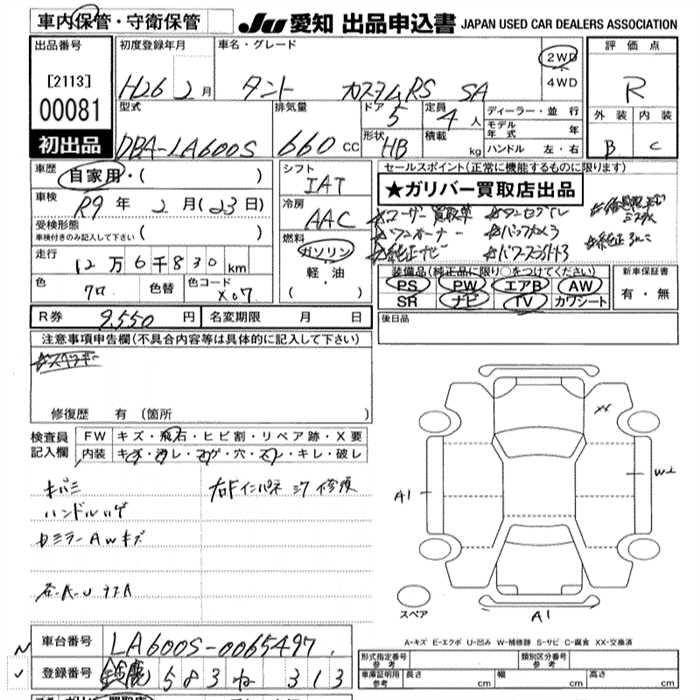 車内保管・守衛保管 JU 愛知 出品申込書 JAPAN USED CAR DEALERS ASSOCIATION
出品番号 初度登録年月 車名・グレード 2WD 4WD 評価点
[2113] H26 2月 タント カスタムRS SA R
00081 型式 排気量 ドア 5 定員 4人 ディーラー・並行 外装 内装
モデル年式 年
初出品 DBA-LA600S 660cc 形状 HB 積載 kg ハンドル 左・右 B C
車歴 自家用・( ) シフト IAT セールスポイント(正常に機能するものに限ります)
★ガリバー買取店出品
車検 R9年 2月(23日) 冷房 AAC
☆ユーザー買取車 ☆ワンセグTV
受検形態 車検付きのみ記入して下さい ( ) 燃料 ガソリン ☆ワンオーナー ☆バックカメラ
軽油 ( ・ ) ☆純正ナビ
走行 12万6千830km 装備品(純正品に限り○をつけてください) 新車保証書
色 クロ 色替 色コード X07 PS PW エアB AW 有・無
SR ナビ TV カワシート
R券 9,550円 名変期限 月 日 後日品
注意事項申告欄(不具合内容等は具体的に記入して下さい)
修復歴 有(箇所 )
検査員記入欄 FW キズ・飛石・ヒビ割・リペア跡・X要
内装 キズ・汚レ・コゲ・穴・スレ・キレ・破レ
キバミ 右Fインパネ シワ 修復
ハンドルハゲ
カミラーAWキズ
XX
A1 W2
スペア A1
A-キズ E-エクボ U-凹み W-補修跡 S-サビ C-腐食 XX-交換済
車台番号 LA600S-0065497
形式指定番号 参考 類別区分番号 参考
登録番号 583 ね 313 車庫証明用 参考 長さ cm 幅 cm 高さ cm